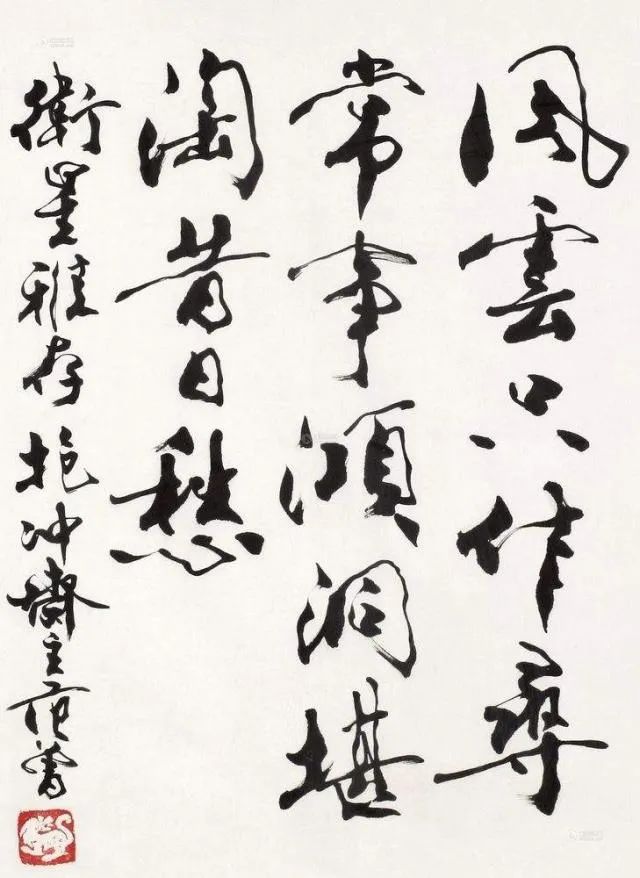 風雲只作尋
常事澒洞堪
淘昔日愁
衛星雅存抱冲齋主范曾